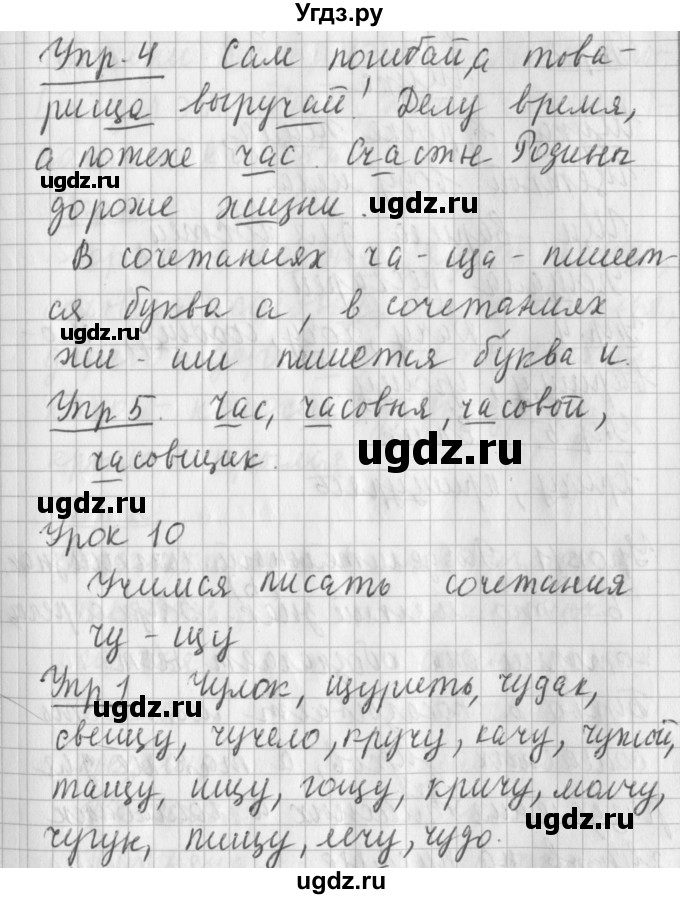 Угдз.ру
Упр. 4 Сам погибай, а това-
рища выручай! Делу время,
а потехе час. Счастье Родины
ugdz.ru
ugdz.ru
дороже жизни.
В сочетаниях ча - ща - пишет-
ся буква а, в сочетаниях
ugdz.ru
жи - ши пишется буква и.
Упр 5. Час, часовня, часовой,
ugdz.ru
часовщик.
ugdz.ru
Урок 10
Учимся писать сочетания
чу - щу
Упр 1 Чулок, щурить, чудак,
ugdz.ru
свещу, чучело, кручу, качу, чужой,
тащу, ищу, гощу, кричу, молчу,
ugdz.ru
чугук, пищу, лечу, чудо.
ugdz.ru